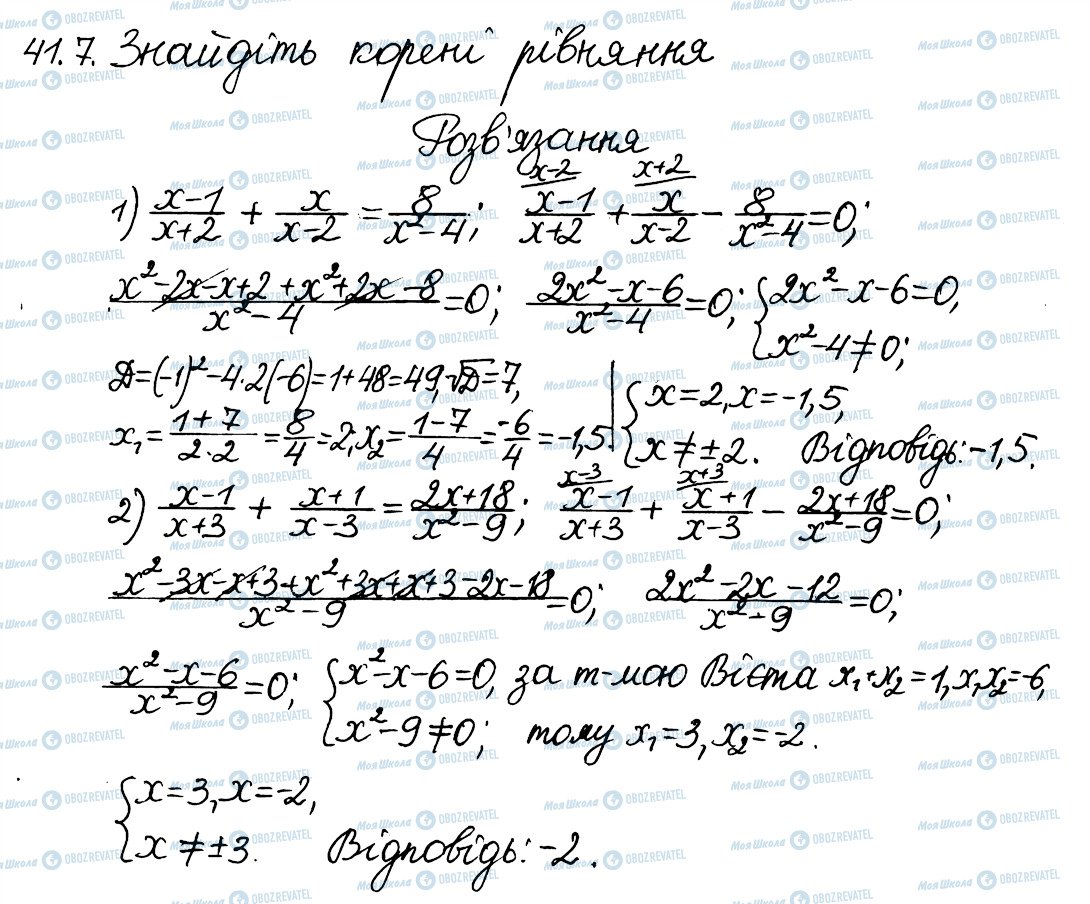 41.7. Знайдіть корені рівняння
Розв'язання
1) (x-1)/(x+2) + x/(x-2) = 8/(x²-4); (x-1)/(x+2) (x-2) + x/(x-2) (x+2) - 8/(x²-4) = 0;
(x²-2x-x+2+x²+2x-8)/(x²-4) = 0; (2x²-x-6)/(x²-4) = 0; { 2x²-x-6=0, x²-4≠0;
D=(-1)²-4·2(-6)=1+48=49, √D=7,
x₁ = (1+7)/(2·2) = 8/4 = 2; x₂ = (1-7)/4 = -6/4 = -1,5. | { x=2, x=-1,5, x≠±2. Відповідь: -1,5.
2) (x-1)/(x+3) + (x+1)/(x-3) = (2x+18)/(x²-9); (x-1)/(x+3) (x-3) + (x+1)/(x-3) (x+3) - (2x+18)/(x²-9) = 0;
(x²-3x-x+3+x²+3x+x+3-2x-18)/(x²-9) = 0; (2x²-2x-12)/(x²-9) = 0;
(x²-x-6)/(x²-9) = 0; { x²-x-6=0, x²-9≠0; за т-мою Вієта x₁+x₂=1, x₁x₂=-6,
тому x₁=3, x₂=-2.
{ x=3, x=-2, x≠±3. Відповідь: -2.
МояШкола OBOZREVATEL